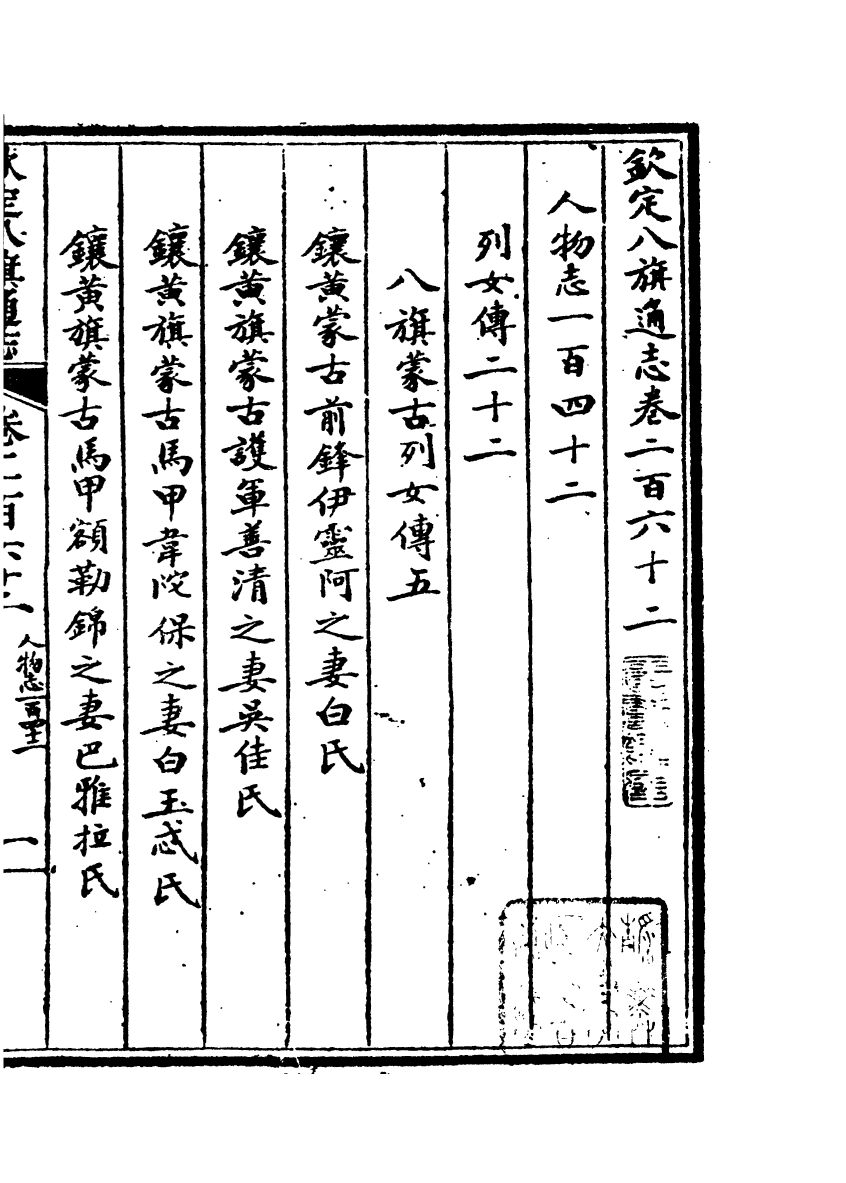 欽定八旗通志卷二百六十二
人物志一百四十二
列女傳二十二
八旗蒙古列女傳五
鑲黃蒙古前鋒伊靈阿之妻白氏
鑲黃旗蒙古護軍善清之妻吳佳氏
鑲黃旗蒙古馬甲韋陀保之妻白玉忒氏
鑲黃旗蒙古馬甲額勒錦之妻巴雅拉氏
欽定八旗通志
卷二百六十二
人物志一百四十二
一